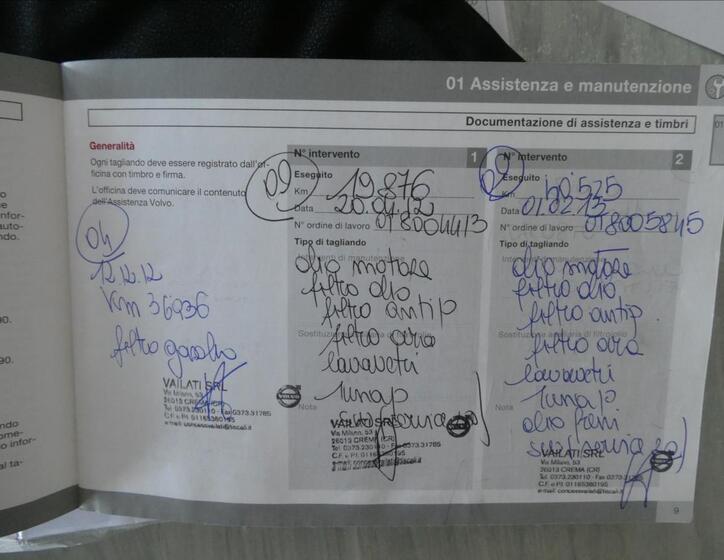 01 Assistenza e manutenzione
Documentazione di assistenza e timbri
01
Generalità
Ogni tagliando deve essere registrato dall'of-
ficina con timbro e firma.
L'officina deve comunicare il contenuto
dell'Assistenza Volvo.
04
12.12.12
Km 36936
filtro gasolio
VAILATI SRL
Via Milano, 53
26013 CREMA (CR)
Tel. 0373.230110 - Fax 0373.31785
C.F. e P.I. 01165360195
e-mail: concessvailati@tiscali.it
N° intervento 1
09
Eseguito
Km 19.876
Data 20.04.12
N° ordine di lavoro 0T8004413
Tipo di tagliando
Interventi di manutenzione
olio motore
filtro olio
filtro antip
filtro aria
lavavetri
Nota
VAILATI SRL
Via Milano, 53
26013 CREMA (CR)
Tel. 0373.230110 - Fax 0373.31785
C.F. e P.I. 01165360195
e-mail: concessvailati@tiscali.it
N° intervento 2
Eseguito
Km
Data 01.02.13
N° ordine di lavoro 0T8005845
Tipo di tagliando
olio motore
filtro olio
filtro antip.
filtro aria
lavavetri
Nota
olio freni
VAILATI SRL
Via Milano, 53
26013 CREMA (CR)
Tel. 0373.230110 - Fax 0373.31785
C.F. e P.I. 01165360195
e-mail: concessvailati@tiscali.it
9